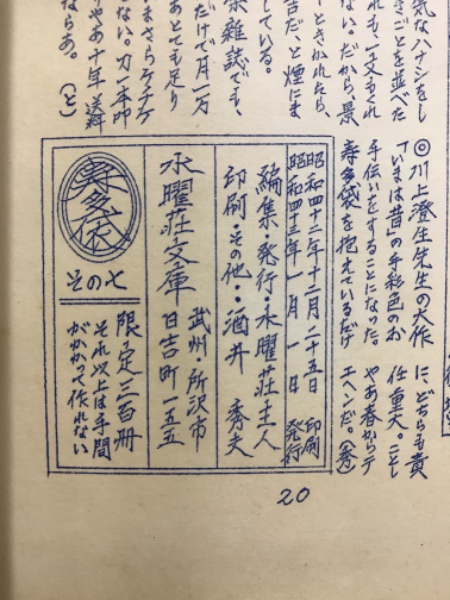 気なハナシをし
きごとを並べた
れも、一文もくれ
ない。だから、景
ときかれたら、
吉だ、と煙にま
している。
雑誌でも、
だけで月一万
あとても足り
いまさらケチケ
ない。
りやあ十年 送料
ならあ。(と)
◎川上澄生先生の大作
「いまは昔」の手彩色のお
手伝いをすることになった。
寿多袋を抱えているだけ
に、どちらも責
任重大。ことし
やあ春からテ
エヘンだ。(秀)
昭和四十二年十二月二十五日 印刷
昭和四十三年一月一日 発行
編集・発行・水曜荘主人
印刷・その他・酒井秀夫
水曜荘文庫
武州・所沢市
日吉町一五五
寿多袋
その七
限定三百冊
それ以上は手間
がかかって作れない
20